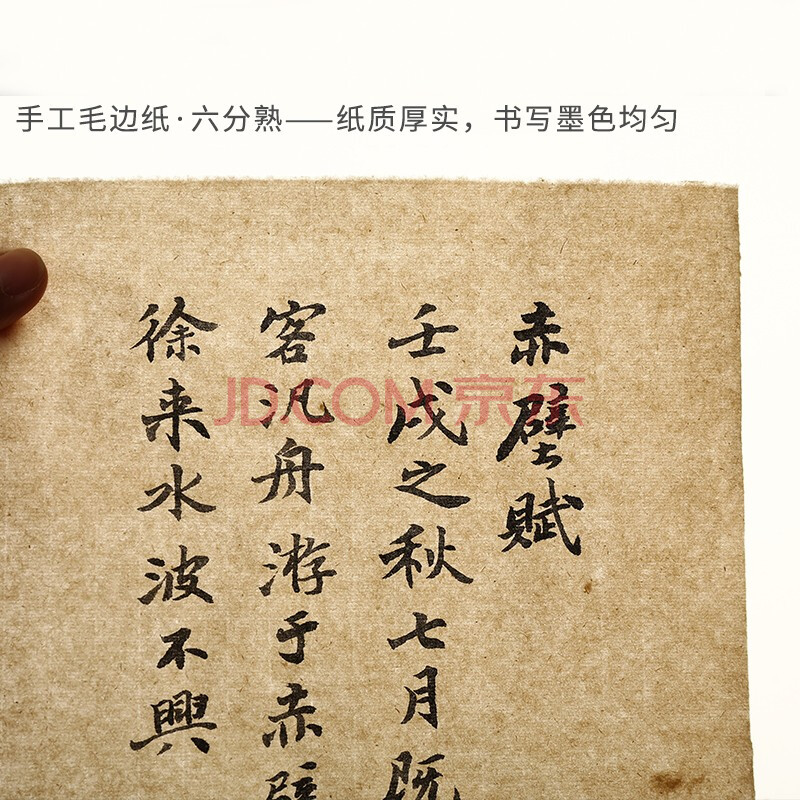 手工毛边纸·六分熟——纸质厚实，书写墨色均匀
赤壁赋
壬戌之秋七月既
客汎舟游于赤壁
徐来水波不興
JD.COM 京东